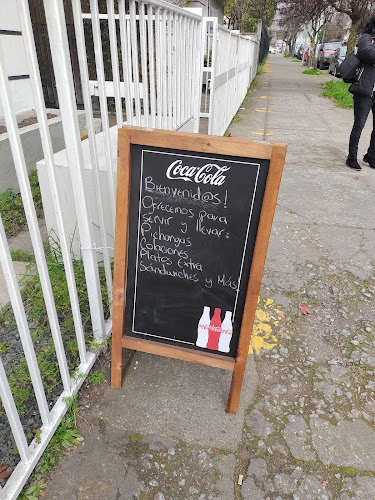 Coca-Cola
Bienvenid@s!
Ofrecemos para
servir y llevar:
Pichangas
Colaciones
Platos Extra
Sándwiches y Más!